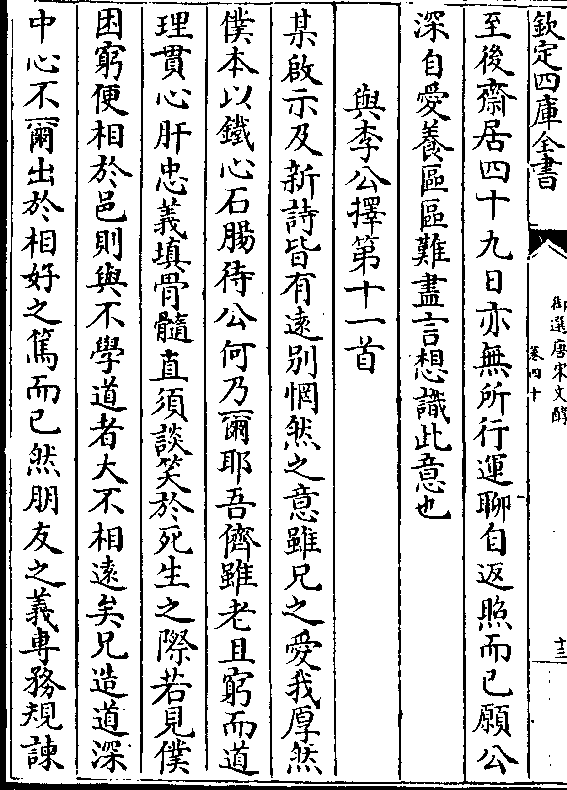 欽定四庫全書
御選唐宋文醇
卷四十
十三
至後齋居四十九日亦無所行運聊自返照而已願公
深自愛養區區難盡言想識此意也
與李公擇第十一首
某啟示及新詩皆有遠別惘然之意雖兄之愛我厚然
僕本以鐵心石腸待公何乃爾耶吾儕雖老且窮而道
理貫心肝忠義填骨髓直須談笑於死生之際若見僕
困窮便相於邑則與不學道者大不相遠矣兄造道深
中心不爾出於相好之篤而已然朋友之義專務規諫